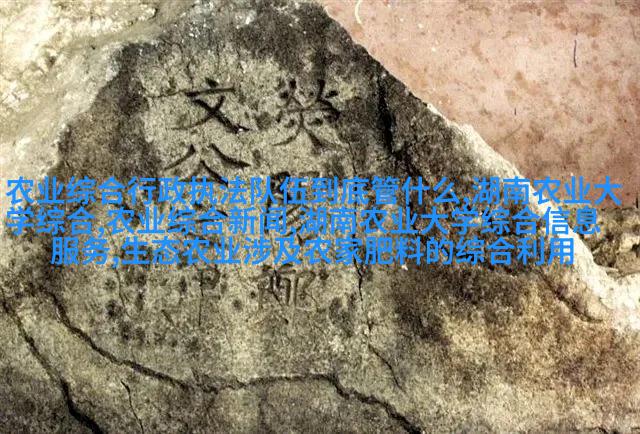 文公
农业综合行政执法队伍到底管什么,湖南农业大
学综合,农业综合新闻,湖南农业大学综合信息
服务,生态农业涉及农家肥料的综合利用